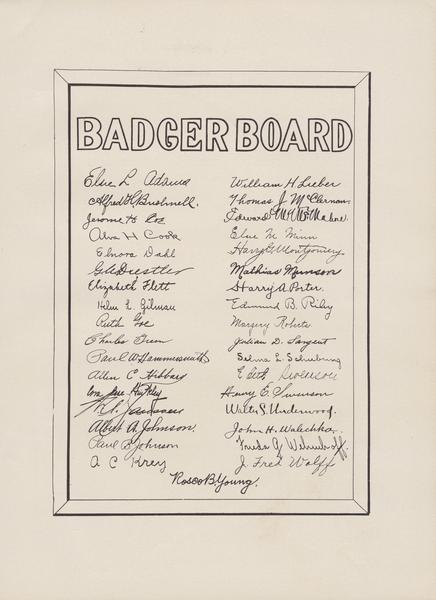 BADGER BOARD
Elsie L. Adams
Alfred H. Bushnell.
Jerome H. Coe
Alva H. Cook
Elnora Dahl
G. Diestler
Elizabeth Flett
Helen L. Gilman
Ruth Goe
Charles Green
Paul W. Hammersmith
Allen C. Hibbard
Hinkley
Albert A. Johnson.
Paul B. Johnson
A C Krey
William H. Lieber
Thomas J. McClernan.
Edward
Elsie M. Minn
Harry G. Montgomery.
Mathias Munson
Harry A. Porter.
Edmund B. Riley
Margery Roberts
Julian D. Sargent
Selma L. Schubring
Edith Swenson
Henry E. Swenson
Walter S. Underwood.
John H. Walechka.
Frieda G.
J. Fred Wolff
Roscoe B. Young.